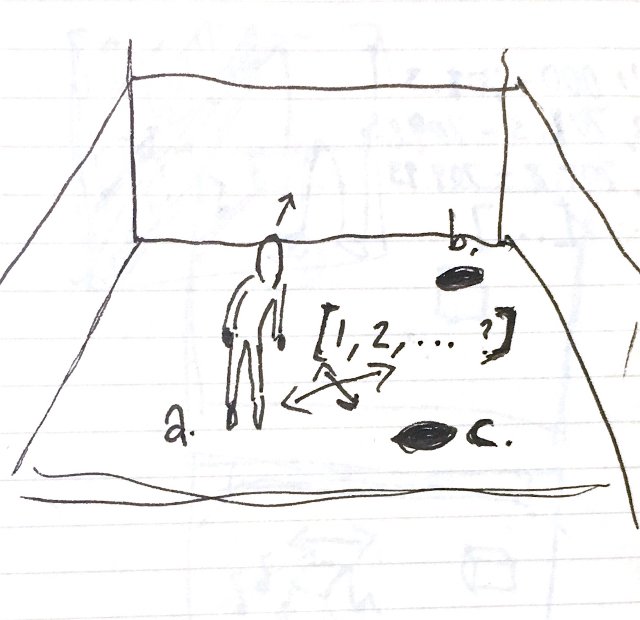 b.
[1, 2, ... ?]
a.
c.